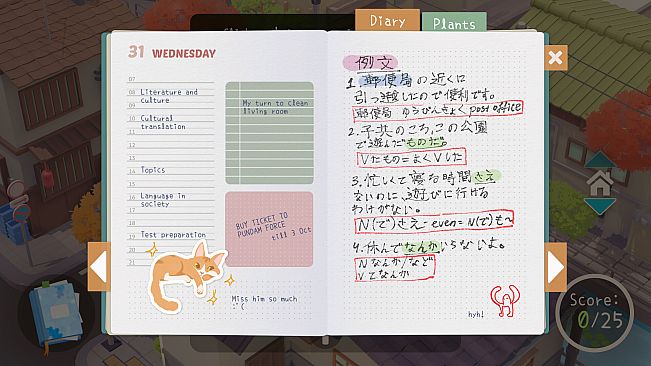 Diary
Plants
31 WEDNESDAY
07
08 Literature and
culture
09
10 Cultural
translation
14 Topics
15
16 Language in
society
17
18
19 Test preparation
20
21
My turn to clean
living room
BUY TICKET TO
PUNDAM FORCE
till 3 Oct
Miss him so much
:'(
例文
1. 郵便局の近くに
引っ越したので便利です。
郵便局 ゆうびんきょく post office
2. 子供のころ、この公園
で遊んだものだ。
Vたもの=よくVした
3. 忙しくて寝る時間さえ
ないのに、遊びに行ける
わけがない。
N(で)さえ-even=N(で)も~
4. 休んでなんかいらないよ。
Nなんか/など
Vてなんか
hyh!
Score:
0/25